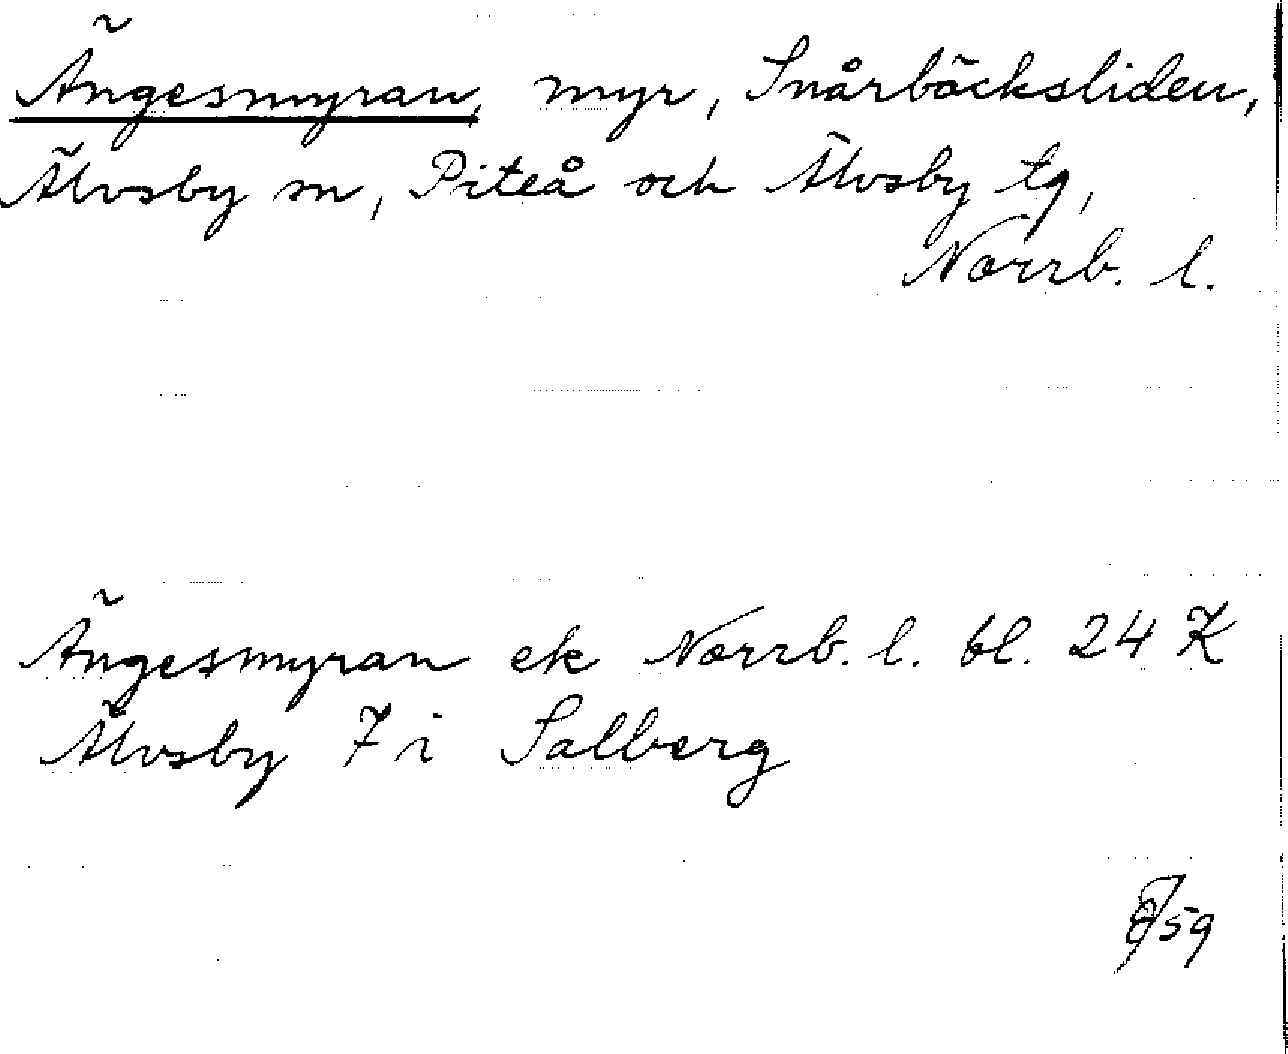 Ängesmyran, myr, Snårbäcksliden,
Älvsby sn, Piteå och Älvsby tg,
Norrb. l.
Ängesmyran ek Norrb. l. bl. 24 K
Älvsby 7 i Salberg
59